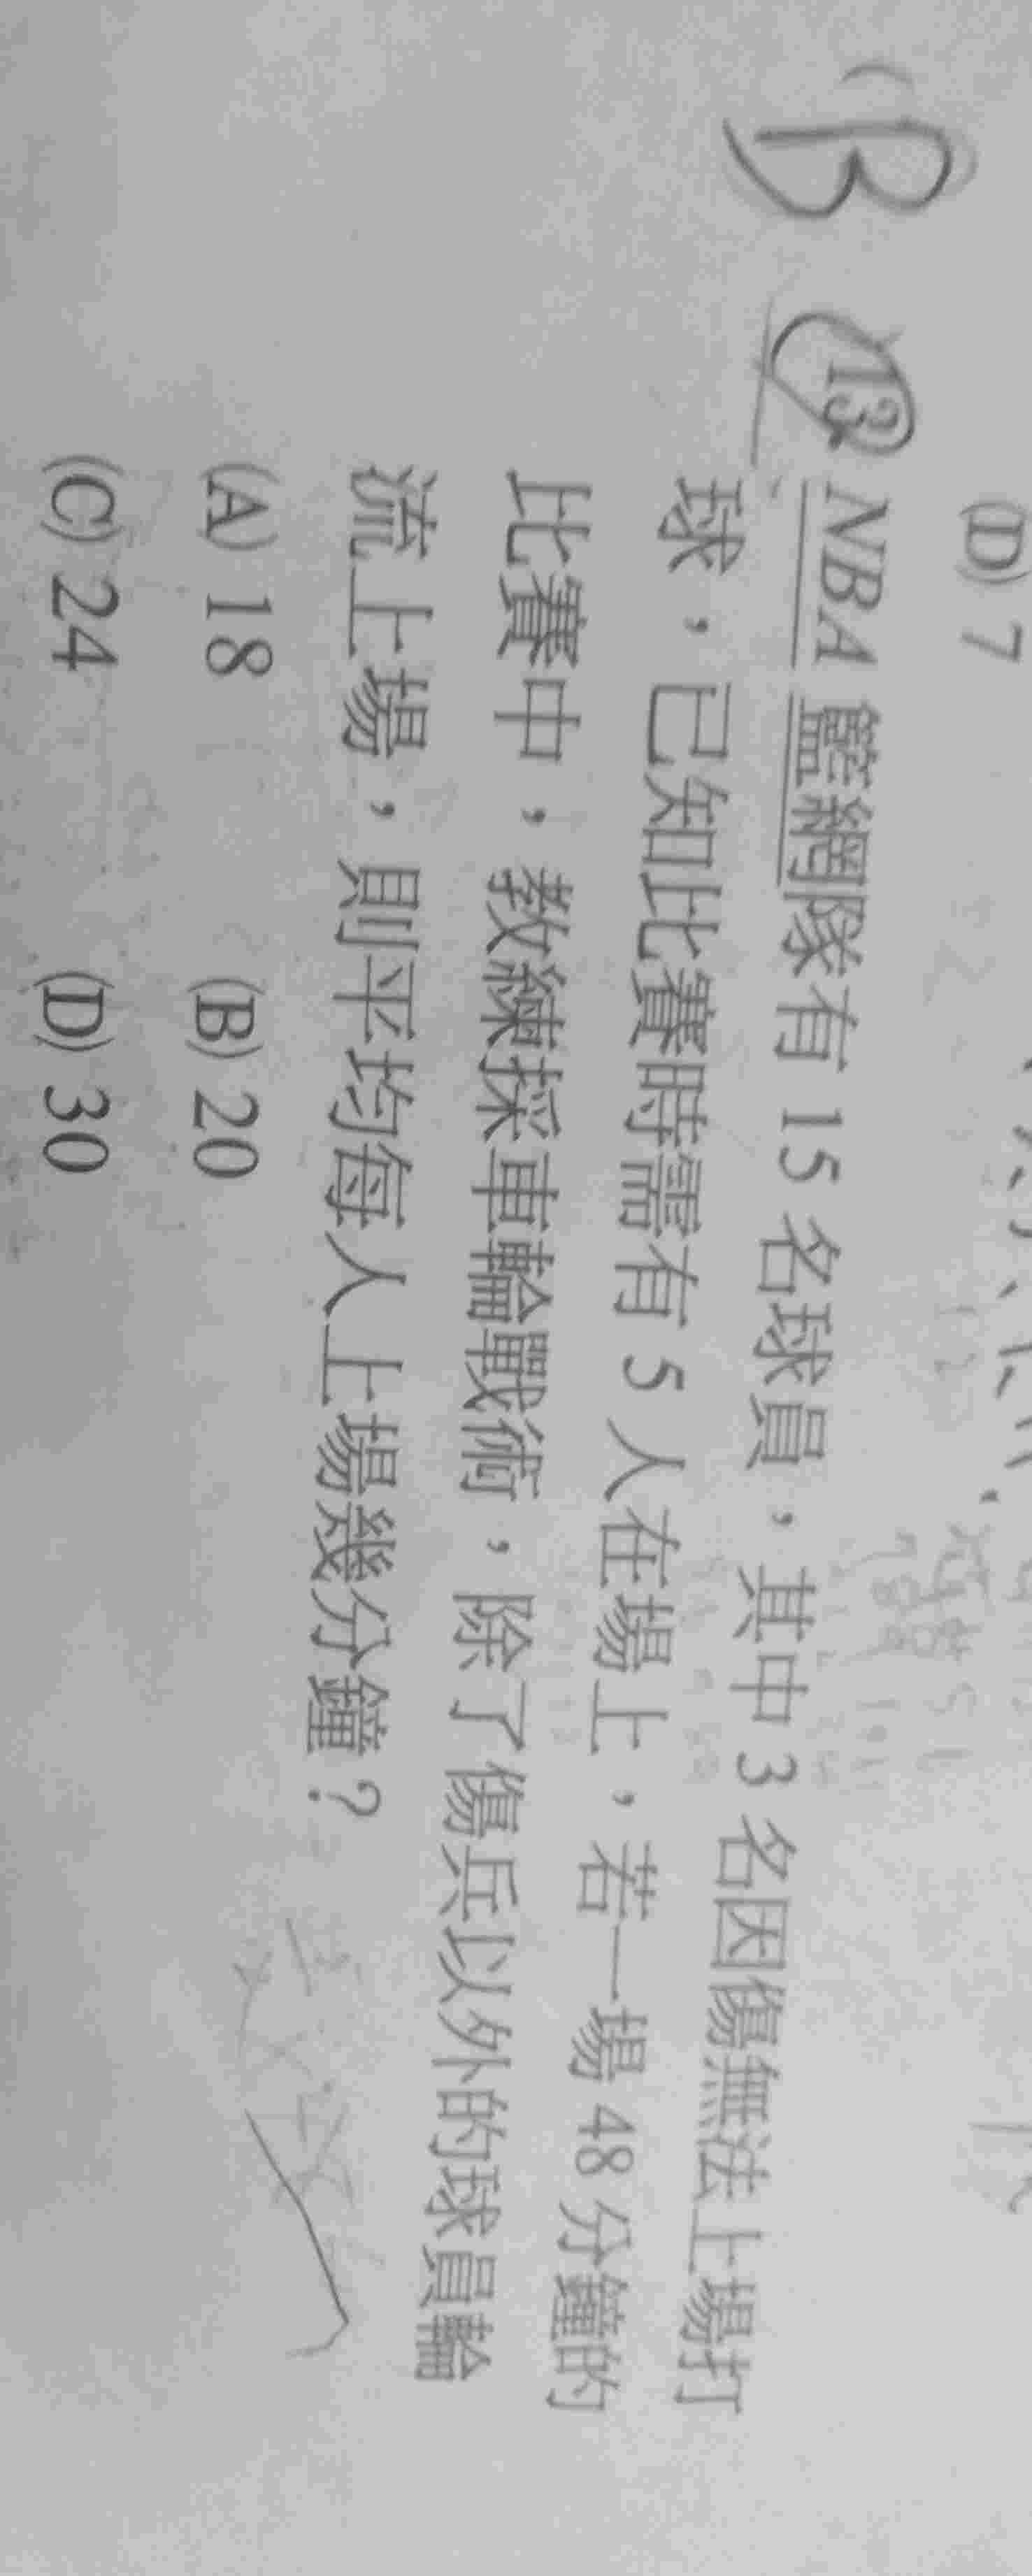 (D) 7
B
13 NBA 籃網隊有 15 名球員，其中 3 名因傷無法上場打
球，已知比賽時需有 5 人在場上，若一場 48 分鐘的
比賽中，教練採車輪戰術，除了傷兵以外的球員輪
流上場，則平均每人上場幾分鐘？
(A) 18 (B) 20
(C) 24 (D) 30